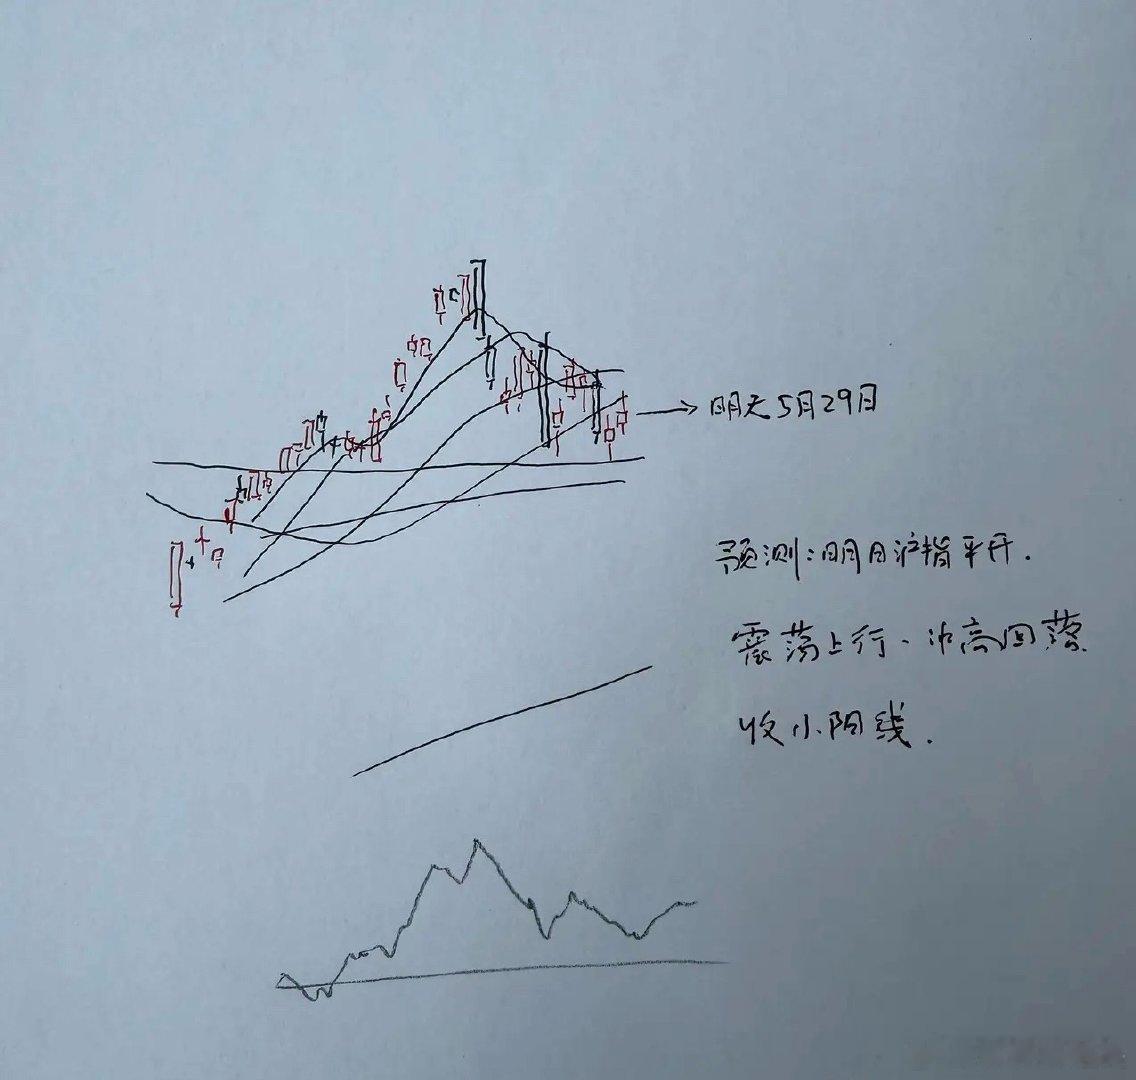 明天5月29日
预测:明日沪指平开.
震荡上行、冲高回落
收小阳线.